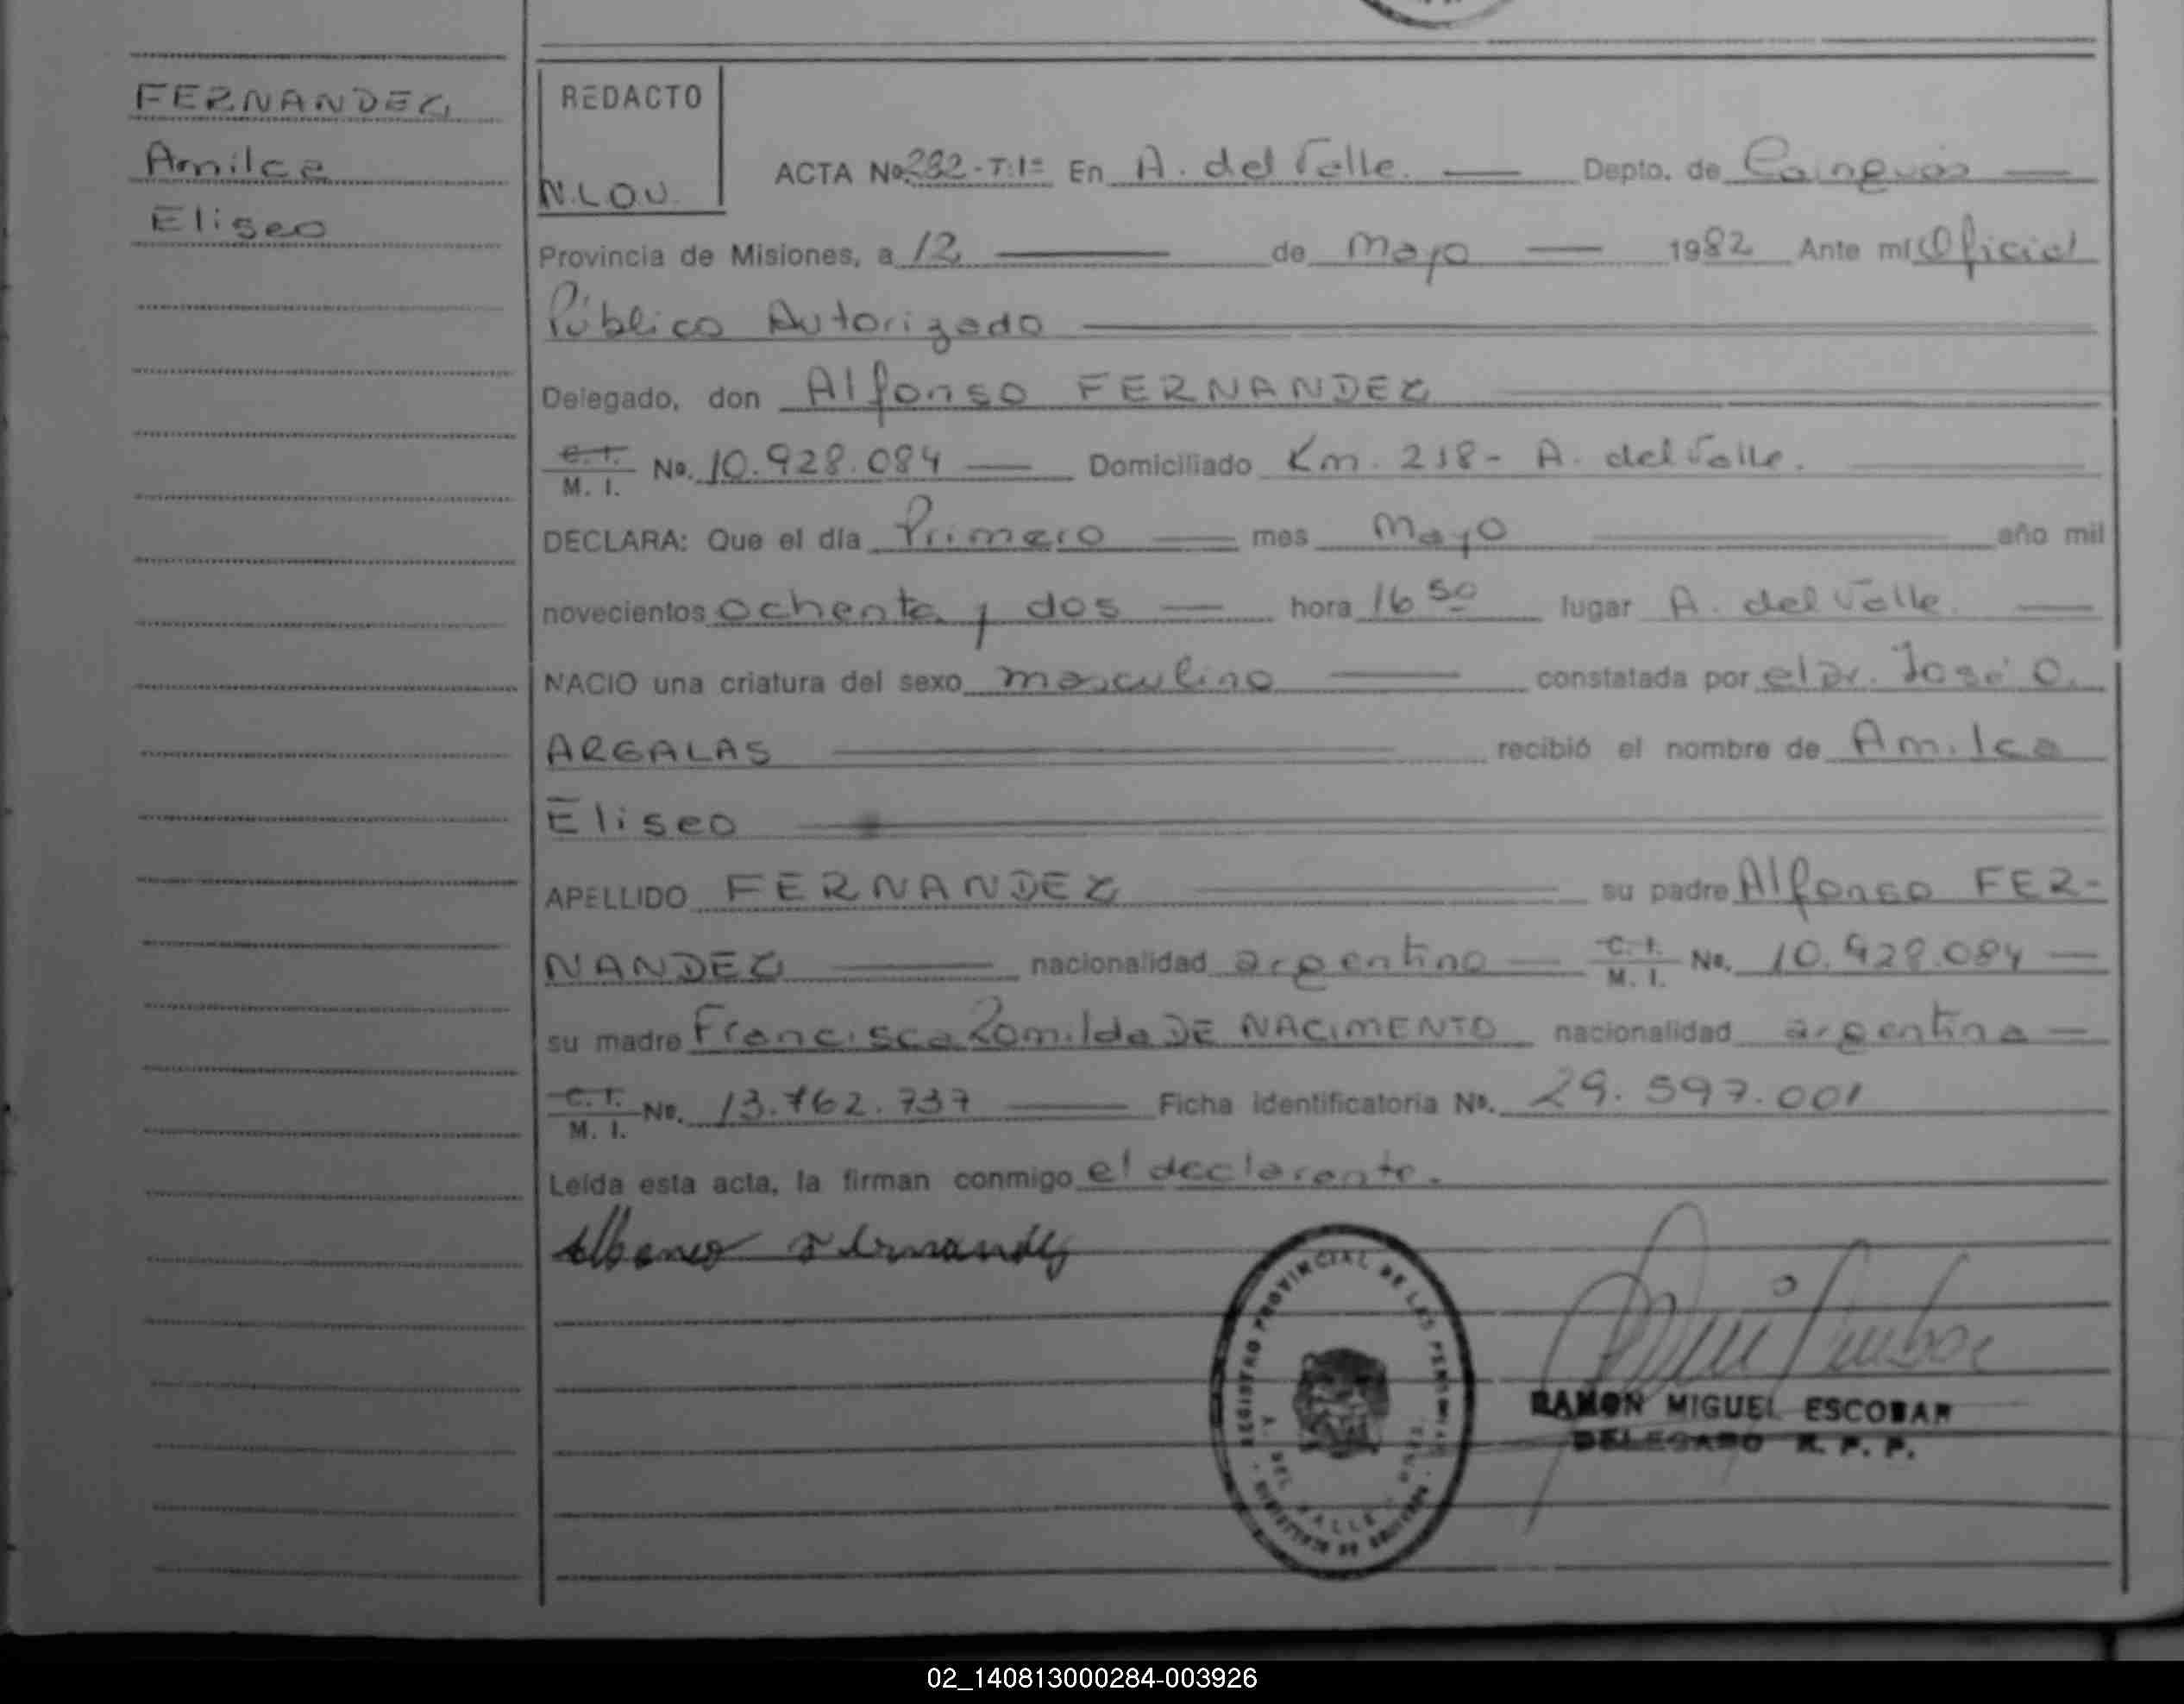 FERNANDEZ
Amilca
Eliseo
REDACTO
N.LOU.
ACTA No 282-T.1º En A. del Valle. Depto. de Cainguás
Provincia de Misiones, a 12 de Mayo 1982 Ante mí Oficial
Público Autorizado
Delegado, don Alfonso FERNANDEZ
C.I. M.I. No. 10.928.084 Domiciliado Km. 218- A. del Valle.
DECLARA: Que el día Primero mes Mayo año mil
novecientos ochenta y dos hora 16 50 lugar A. del Valle.
NACIO una criatura del sexo masculino constatada por el Dr. José O.
ARGALAS recibió el nombre de Amilca
Eliseo
APELLIDO FERNANDEZ su padre Alfonso FER-
NANDEZ nacionalidad argentino C.I. M.I. No. 10.928.084
su madre Francisca Romilda DE NACIMENTO nacionalidad argentina
C.I. M.I. No. 13.762.737 Ficha identificatoria No. 29.597.001
Leída esta acta, la firman conmigo el declarante.
Fernandez
REGISTRO PROVINCIAL DE LAS PERSONAS
A. DEL VALLE
RAMON MIGUEL ESCOBAR
DELEGADO R. P. P.
02_140813000284-003926